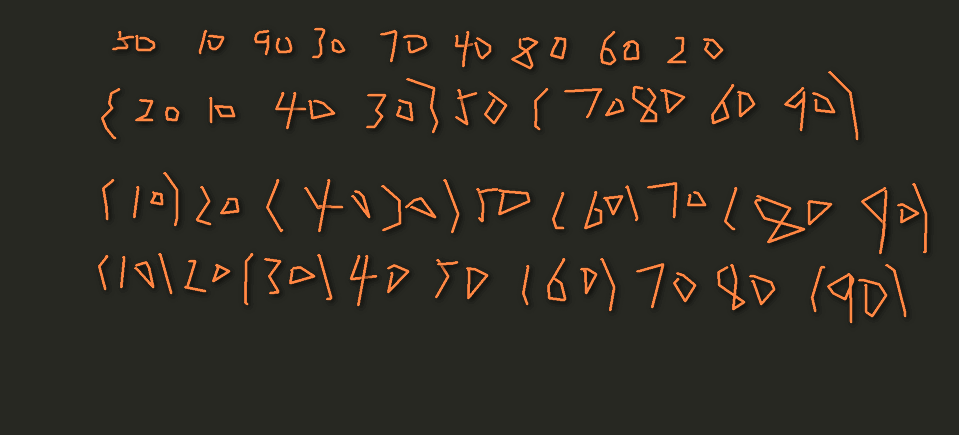 50 10 90 30 70 40 80 60 20
{20 10 40 30} 50 {70 80 60 90}
{10} 20 {40 30} 50 {60} 70 {80 90}
{10} 20 {30} 40 50 {60} 70 80 {90}